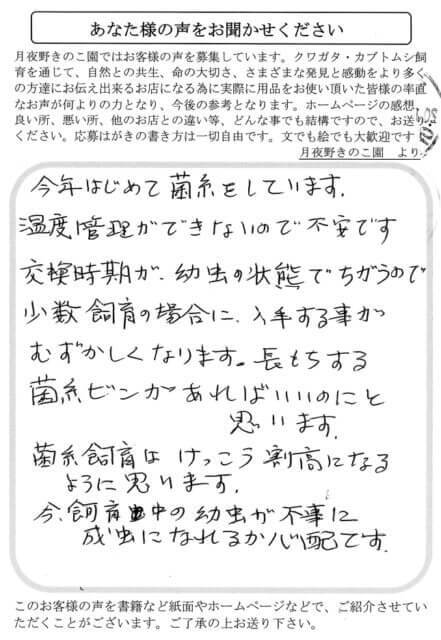 あなた様の声をお聞かせください
月夜野きのこ園ではお客様の声を募集しています。クワガタ・カブトムシ飼
育を通じて、自然との共生、命の大切さ、さまざまな発見と感動をより多く
の方達にお伝え出来るお店になる為に実際に用品をお使い頂いた皆様の率直
なお声が何よりの力となり、今後の参考となります。ホームページの感想、
良い所、悪い所、他のお店との違い等、どんな事でも結構ですので、お送り
ください。応募はがきの書き方は一切自由です。文でも絵でも大歓迎です
月夜野きのこ園 より
今年はじめて菌糸をしています.
温度管理ができないので不安です
交換時期が、幼虫の状態でちがうので
少数飼育の場合に、入手する事が
むずかしくなります。長もちする
菌糸ビンがあればいいのにと
思います.
菌糸飼育はけっこう割高になる
ように思います.
今、飼育中の幼虫が不事に
成虫になれるか心配です.
このお客様の声を書籍など紙面やホームページなどで、ご紹介させてい
ただくことがございます。ご了承の上お送り下さい。